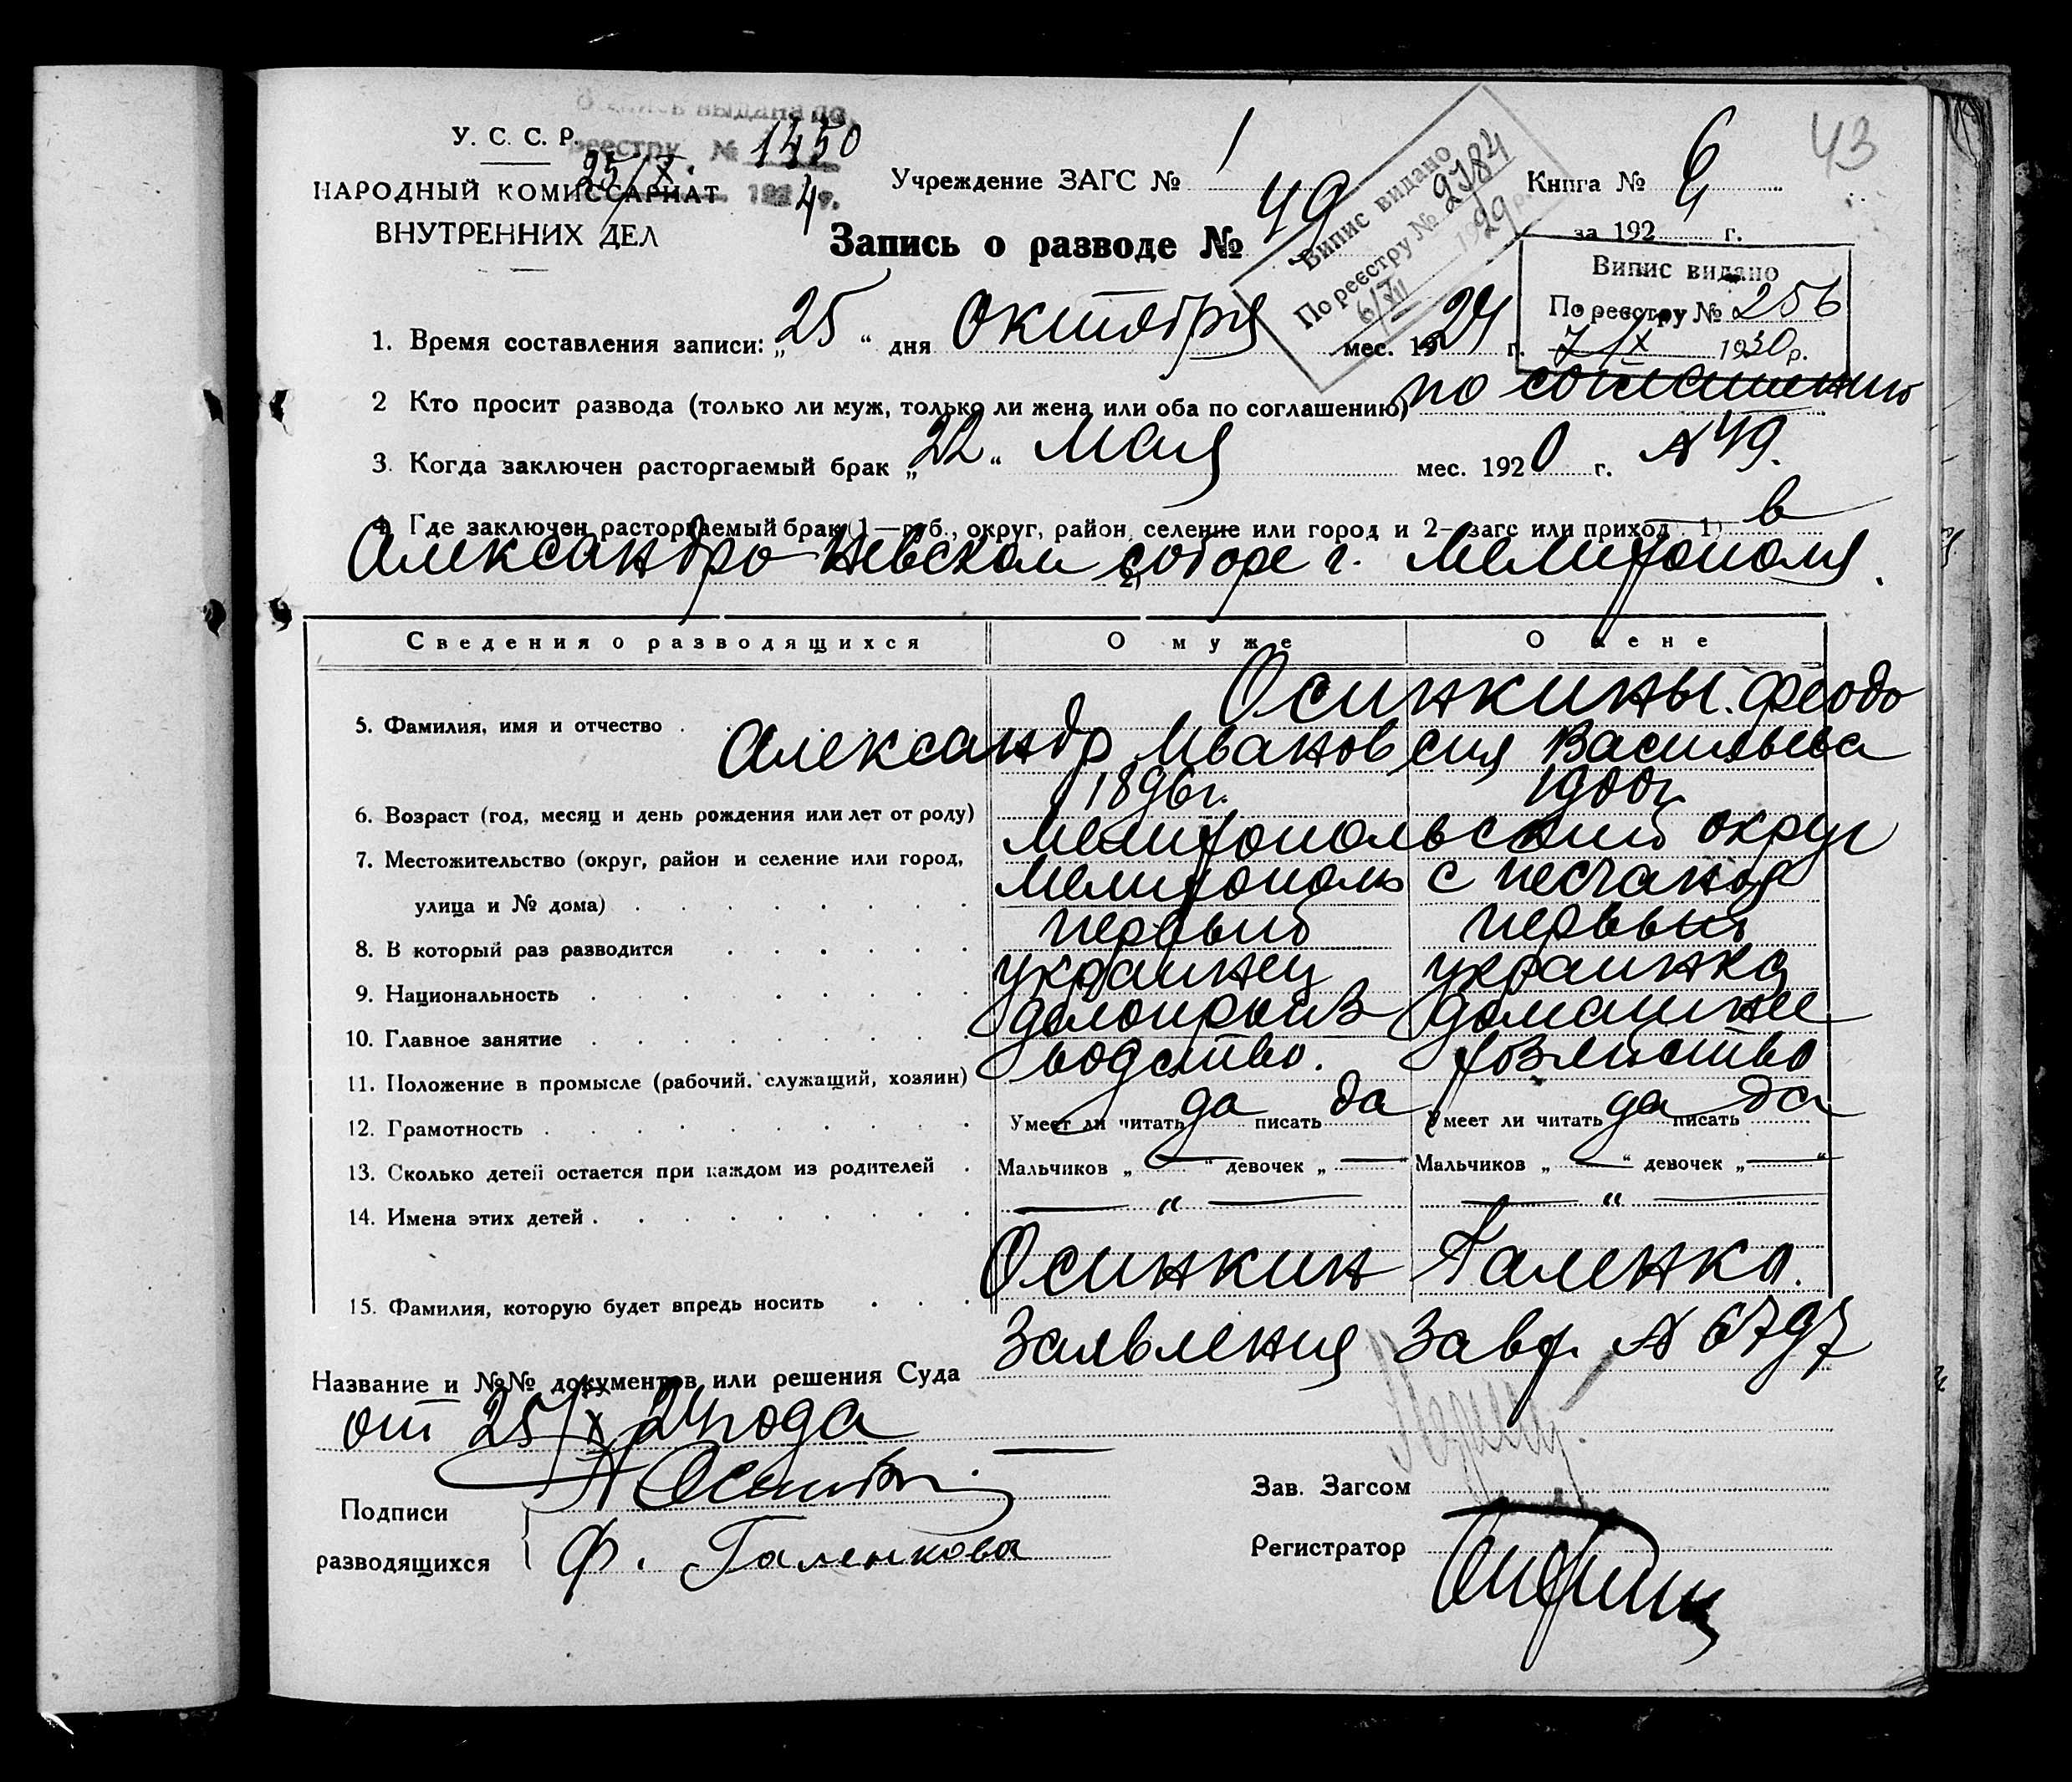 выдана по
реестру № 1450
25/X 1924 г.
У. С. С. Р.
НАРОДНЫЙ КОМИССАРИАТ
ВНУТРЕННИХ ДЕЛ
Учреждение ЗАГС № 1
Запись о разводе № 49
Випис видано
По реєстру № 2784
6/XII 1929 р.
Книга № 6
за 1924 г.
43
Випис видано
По реєстру № 256
7/X 1930 р.
1. Время составления записи: „25“ дня Октября мес. 1924 г.
2 Кто просит развода (только ли муж, только ли жена или оба по соглашению) по соглашению
3. Когда заключен расторгаемый брак „22“ Мая мес. 1920 г. № 49.
4. Где заключен расторгаемый брак (1—губ., округ, район, селение или город и 2—загс или приход) 1) в
Александро-Невском соборе г. Мелитополя.
2)
Сведения о разводящихся О муже О жене
Осинкины. Феодо
5. Фамилия, имя и отчество . Александр Иванов сия Васильева
6. Возраст (год, месяц и день рождения или лет от роду) 1896 г. 1900 г.
Мелитопольский округ
7. Местожительство (округ, район и селение или город,
улица и № дома) Мелитополь с Песчаное
8. В который раз разводится первый первый
9. Национальность украинец украинка
10. Главное занятие делопроиз домашнее
11. Положение в промысле (рабочий, служащий, хозяин) водство. хозяйство
12. Грамотность Умеет ли читать да писать да Умеет ли читать да писать да
13. Сколько детей остается при каждом из родителей . Мальчиков „—“ девочек „—“ Мальчиков „—“ девочек „—“
14. Имена этих детей — " — — " —
15. Фамилия, которую будет впредь носить Осинкин Галенко.
Название и №№ документов или решения Суда Заявления Завер. № 6797
от 25/X 24 года
Подписи
разводящихся
Ф. Галенкова
Зав. Загсом
Регистратор